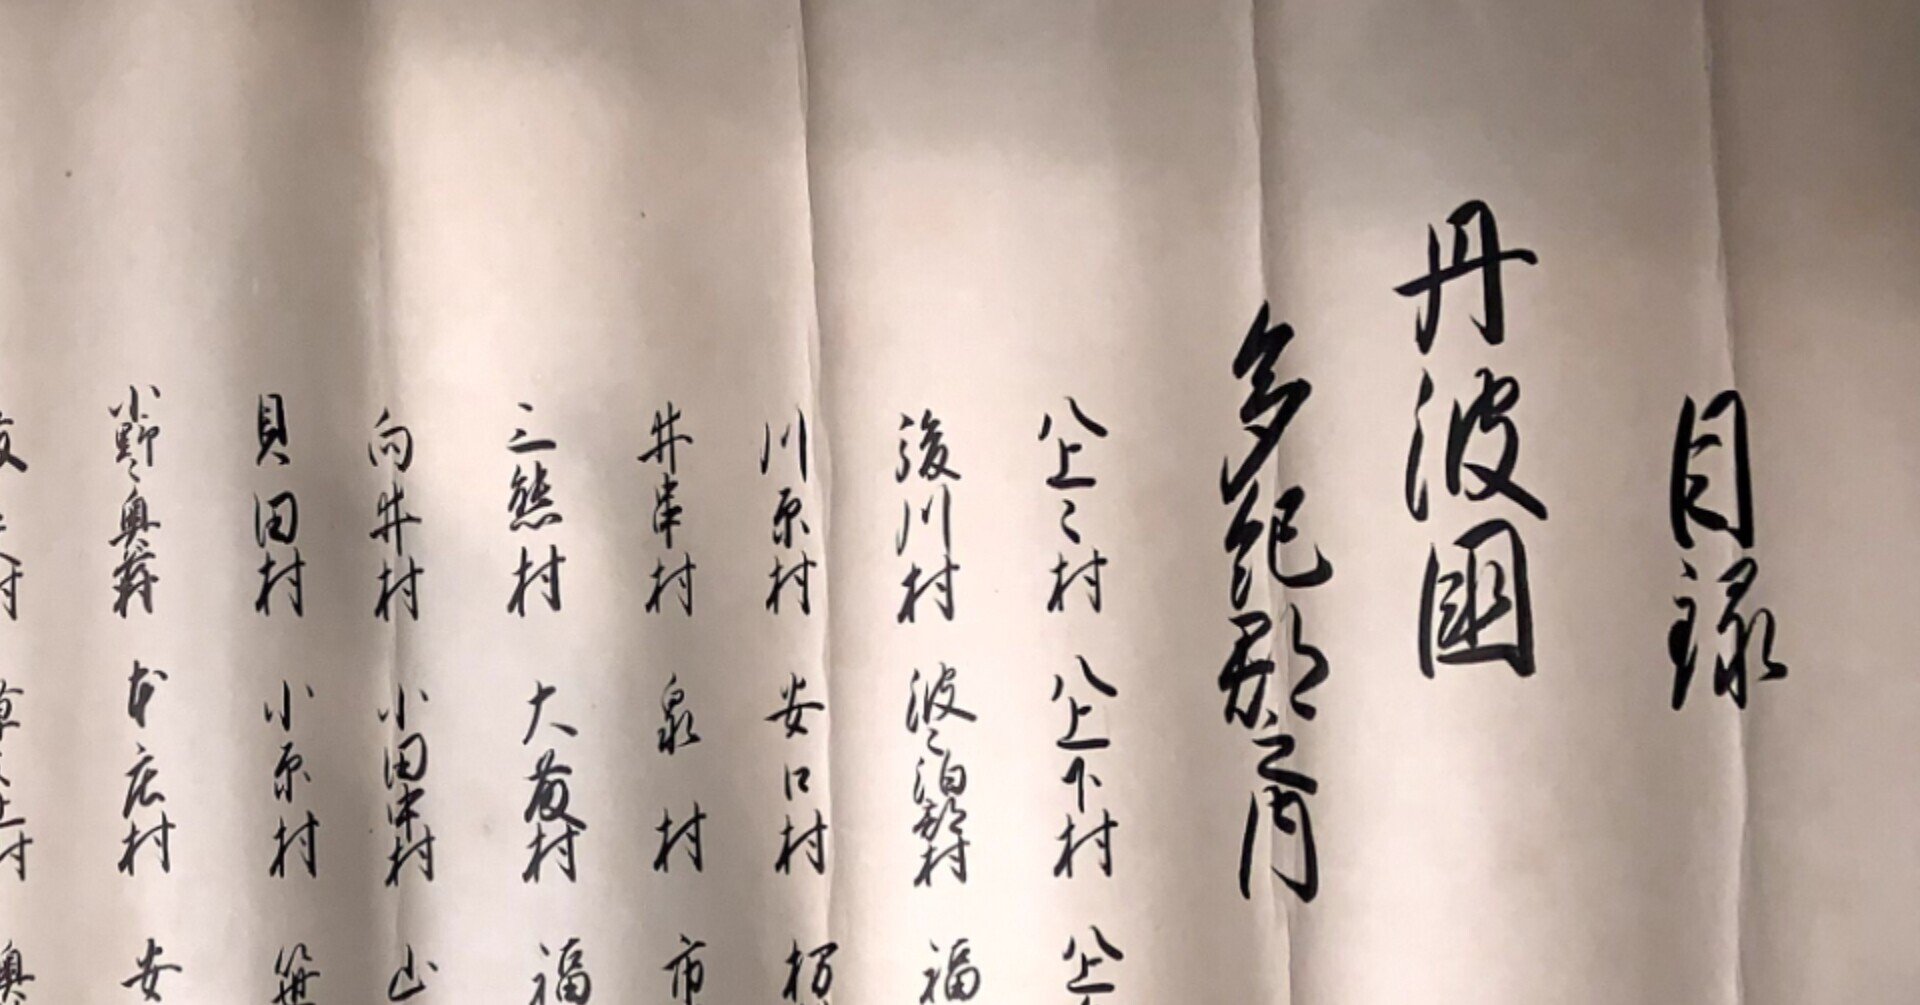 目録
丹波國
多紀郡之内
八上々村 八上下村 八上
後川村 波々伯部村 福
川原村 安口村
井串村 泉村 市
三熊村 大藪村 福
向井村 小田中村 山
貝田村 小原村
小野々奥番村 本庄村 安
村 村 奥